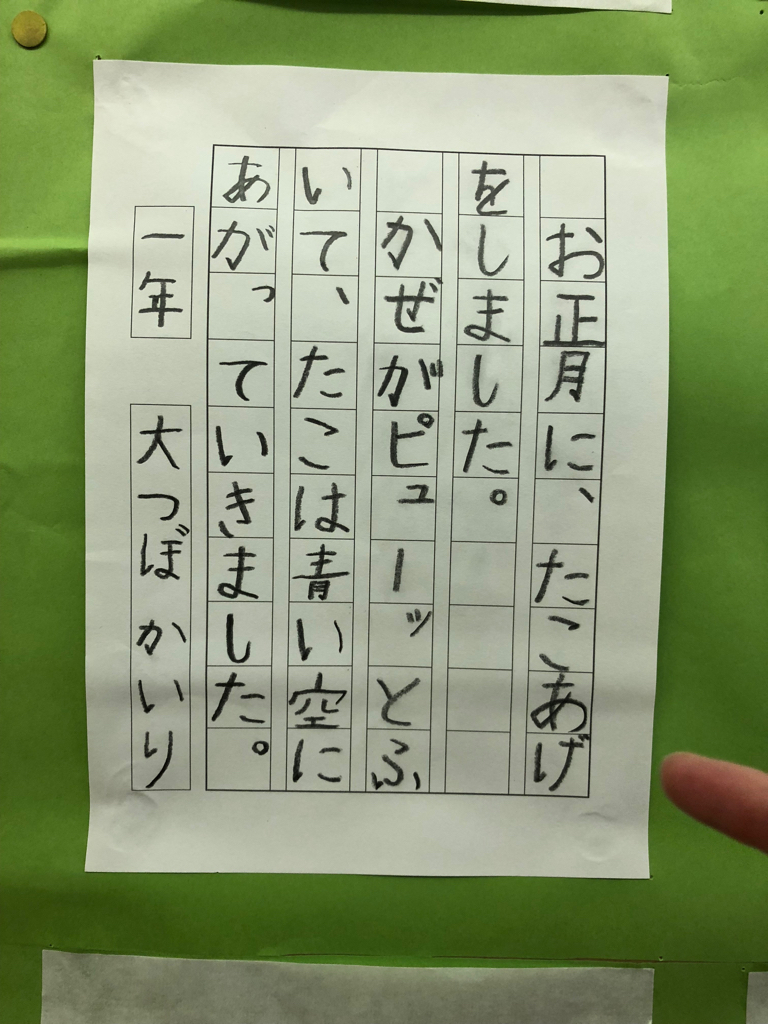 お正月に、たこあげ
をしました。
かぜがピューッとふ
いて、たこは青い空に
あがっていきました。
一年 大つぼ かいり